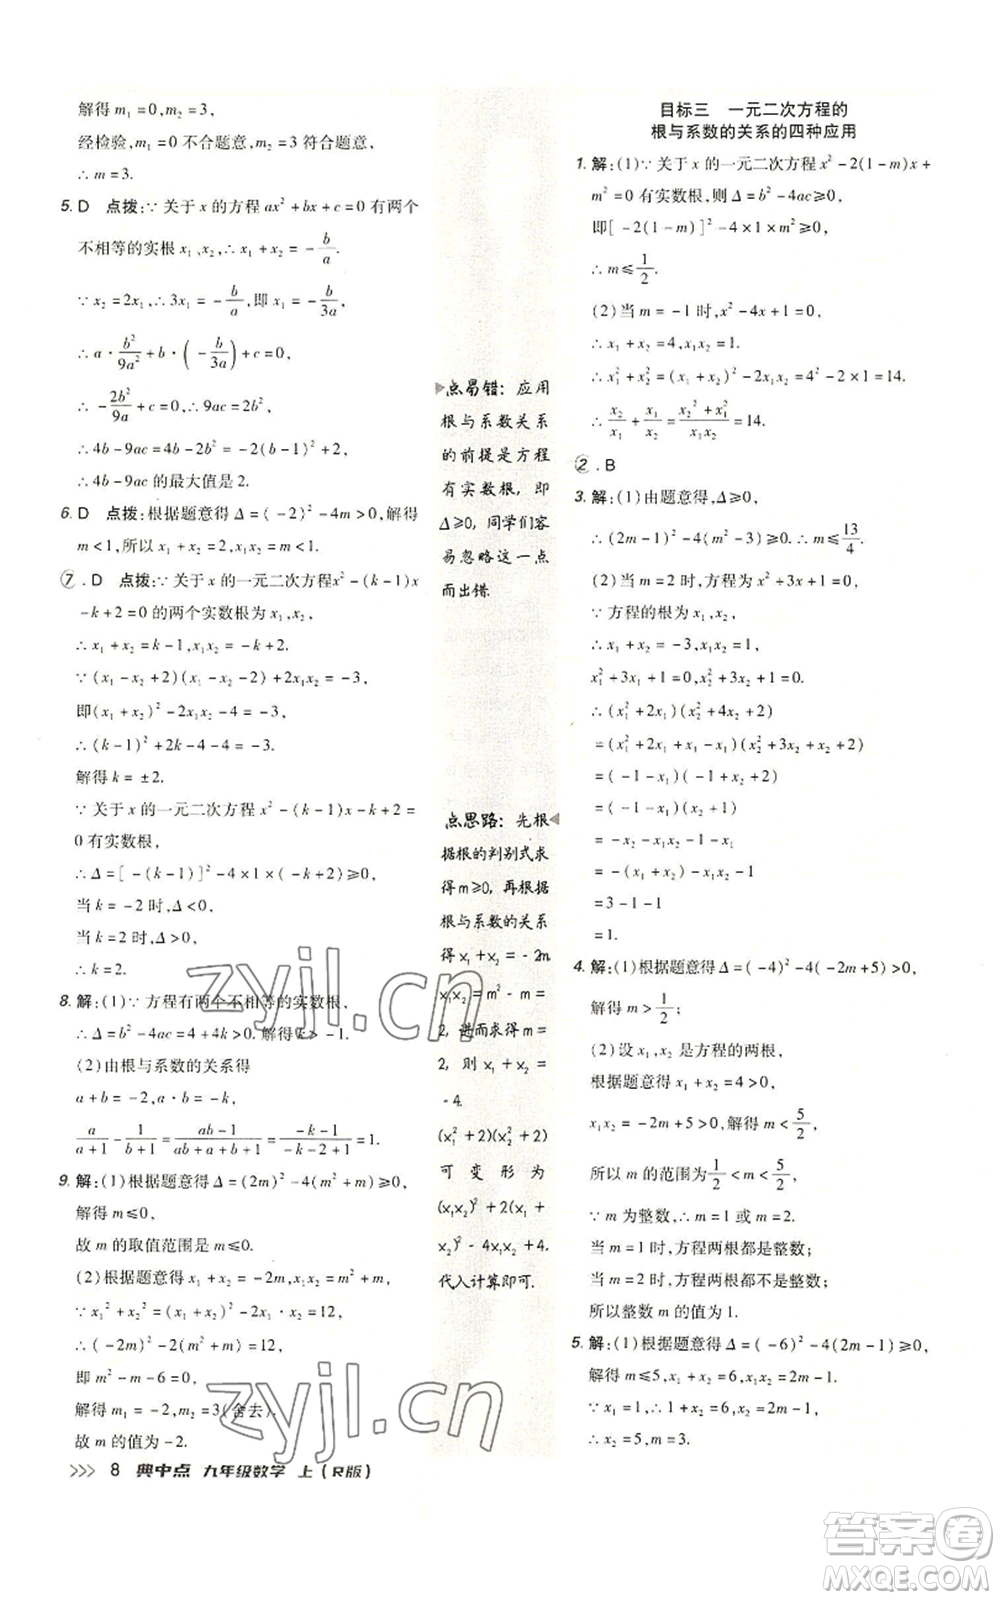 解得 m₁=0,m₂=3,
经检验,m=0 不合题意,m=3 符合题意,
∴ m=3.
5. D 点拨:∵ 关于 x 的方程 ax²+bx+c=0 有两个
不相等的实根 x₁、x₂,∴ x₁+x₂=-b/a.
∵ x₂=2x₁,∴ 3x₁=-b/a,即 x₁=-b/3a,
∴ a·b²/9a²+b·(-b/3a)+c=0,
∴ -2b²/9a+c=0,∴ 9ac=2b²,
∴ 4b-9ac=4b-2b²=-2(b-1)²+2,
∴ 4b-9ac 的最大值是 2.
6. D 点拨:根据题意得 Δ=(-2)²-4m>0,解得
m<1,所以 x₁+x₂=2,x₁x₂=m<1.
⑦. D 点拨:∵ 关于 x 的一元二次方程x²-(k-1)x
-k+2=0 的两个实数根为 x₁,x₂,
∴ x₁+x₂=k-1,x₁x₂=-k+2.
∵ (x₁-x₂+2)(x₁-x₂-2)+2x₁x₂=-3,
即(x₁+x₂)²-2x₁x₂-4=-3,
∴ (k-1)²+2k-4-4=-3.
解得 k=±2.
∵ 关于 x 的一元二次方程 x²-(k-1)x-k+2=
0 有实数根,
∴ Δ=[-(k-1)]²-4×1×(-k+2)≥0,
当 k=-2 时,Δ<0,
当 k=2 时,Δ>0,
∴ k=2.
8. 解:(1)∵ 方程有两个不相等的实数根,
∴ Δ=b²-4ac=4+4k>0.解得k>-1.
(2)由根与系数的关系得
a+b=-2,ab=-k,
a/(a+1)-1/(b+1)=(ab-1)/(ab+a+b+1)=(-k-1)/(-k-2+1)=1.
9. 解:(1)根据题意得 Δ=(2m)²-4(m²+m)≥0,
解得 m≤0.
故 m 的取值范围是 m≤0.
(2)根据题意得 x₁+x₂=-2m,x₁x₂=m²+m,
∵ x₁²+x₂²=(x₁+x₂)²-2x₁x₂=12,
∴ (-2m)²-2(m²+m)=12,
即 m²-m-6=0,
解得 m₁=-2,m₂=3(舍去).
故 m 的值为-2.
>>> 8 典中点 九年级数学 上(R版)
点易错:应用
根与系数关系
的前提是方程
有实数根,即
Δ≥0,同学们容
易忽略这一点
而出错.
点思路:先根
据根的判别式求
得m≥0,再根据
根与系数的关系
得x₁+x₂=-2m
x₁x₂=m²-m-
2,进而求得m=
2,则x₁+x₂=
-4.
(x₁²+2)(x₂²+2)
可变形为
(x₁x₂)²+2(x₁+
x₂)²-4x₁x₂+4.
代入计算即可.
目标三 一元二次方程的
根与系数的关系的四种应用
1. 解:(1)∵ 关于 x 的一元二次方程 x²-2(1-m)x+
m²=0 有实数根,则 Δ=b²-4ac≥0,
即[-2(1-m)]²-4×1×m²≥0,
∴ m≤1/2.
(2)当 m=-1 时,x²-4x+1=0,
∴ x₁+x₂=4,x₁x₂=1.
∴ x₁²+x₂²=(x₁+x₂)²-2x₁x₂=4²-2×1=14.
∴ x₂/x₁+x₁/x₂=(x₂²+x₁²)/x₁x₂=14.
②. B
3. 解:(1)由题意得,Δ≥0,
∴ (2m-1)²-4(m²-3)≥0.∴ m≤13/4.
(2)当 m=2 时,方程为 x²+3x+1=0,
∵ 方程的根为 x₁,x₂,
∴ x₁+x₂=-3,x₁x₂=1,
x₁²+3x₁+1=0,x₂²+3x₂+1=0,
∴ (x₁²+2x₁)(x₂²+4x₂+2)
=(x₁²+2x₁+x₁-x₁)(x₂²+3x₂+x₂+2)
=(-1-x₁)(-1+x₂+2)
=(-1-x₁)(x₂+1)
=-x₂-x₁x₂-1-x₁
=-(x₁+x₂)-x₁x₂-1
=3-1-1
=1.
4. 解:(1)根据题意得Δ=(-4)²-4(-2m+5)>0,
解得 m>1/2;
(2)设 x₁,x₂是方程的两根,
根据题意得 x₁+x₂=4>0,
x₁x₂=-2m+5>0,解得 m<5/2,
所以 m 的范围为1/2<m<5/2.
∵ m 为整数,∴ m=1 或 m=2.
当 m=1 时,方程两根都是整数;
当 m=2 时,方程两根都不是整数;
所以整数 m 的值为 1.
5. 解:(1)根据题意得 Δ=(-6)²-4(2m-1)≥0,
解得 m≤5,x₁+x₂=6,x₁x₂=2m-1,
∵ x₁=1,∴ 1+x₂=6,x₂=2m-1,
∴ x₂=5,m=3;
zyjl.cn
zyjl.cn
答案卷
MXQE.COM